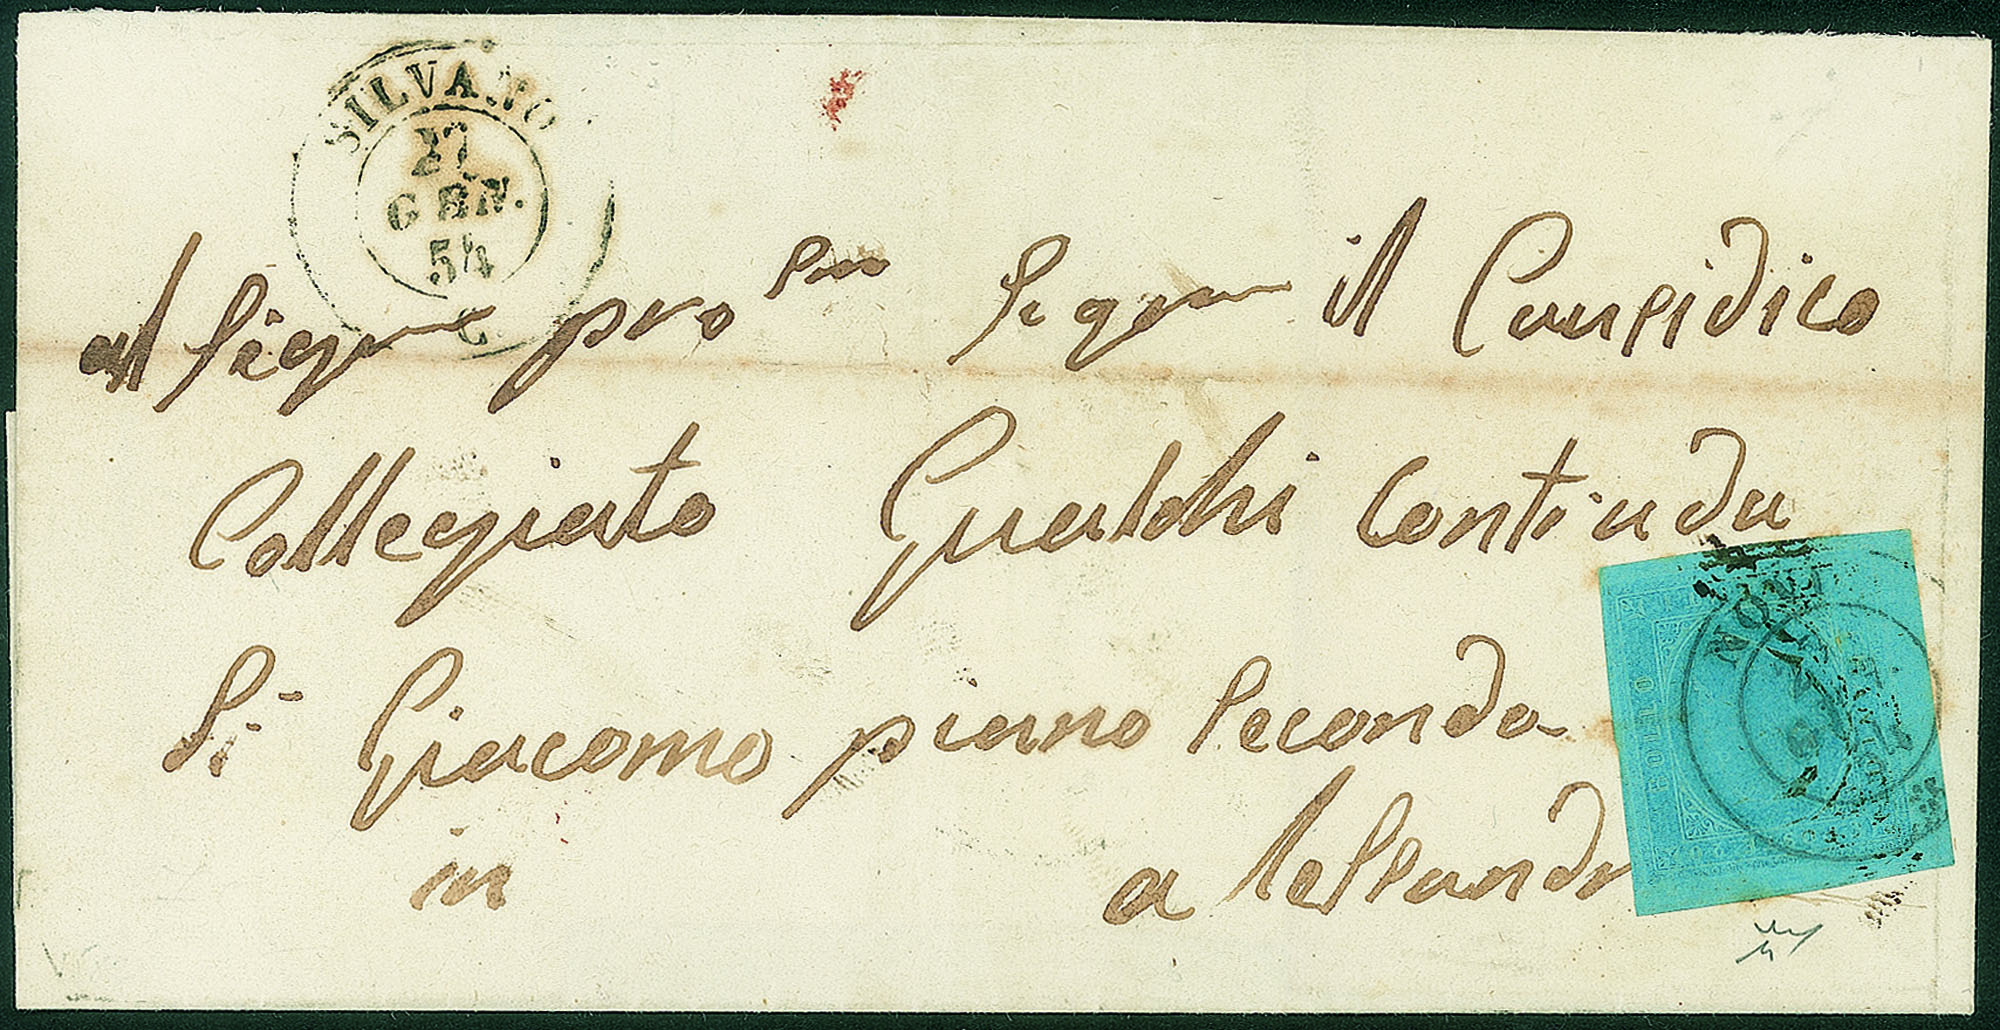 SILVANO
27
GEN.
54
al Sigr pro Sigr il Causidico
Collegiato Gualchi Contrada
Si Giacomo piano Secondo
in alessandr
BOLLO
NOVI